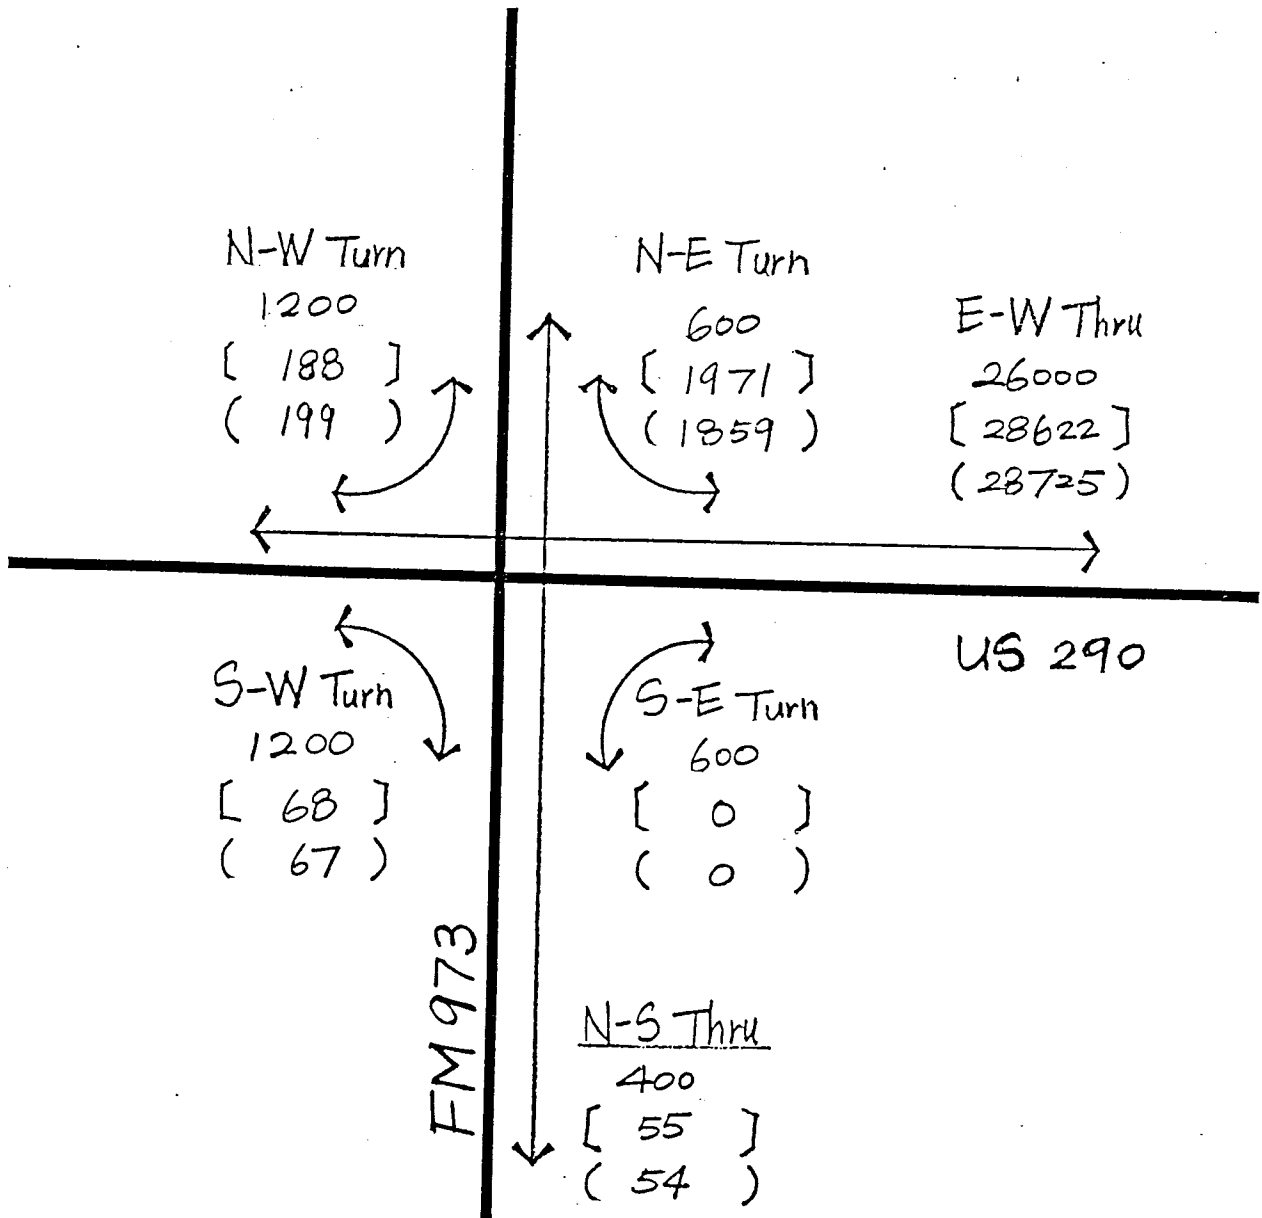 N-W Turn
1200
[ 188 ]
( 199 )
N-E Turn
600
[ 1971 ]
( 1859 )
E-W Thru
26000
[ 28622 ]
( 28725 )
US 290
S-W Turn
1200
[ 68 ]
( 67 )
S-E Turn
600
[ 0 ]
( 0 )
FM 973
N-S Thru
400
[ 55 ]
( 54 )